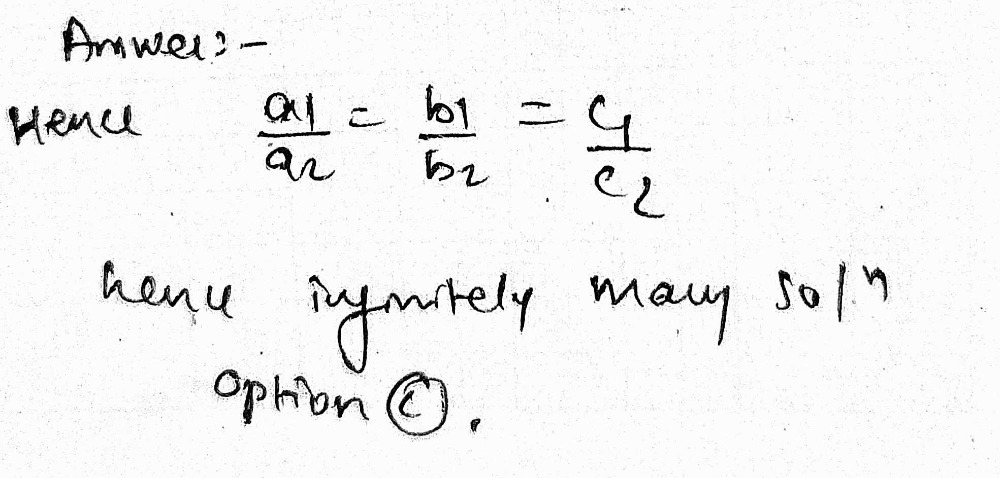 Answer:-
Hence a1/a2 = b1/b2 = c1/c2
hence infinitely many solⁿ
option (C).